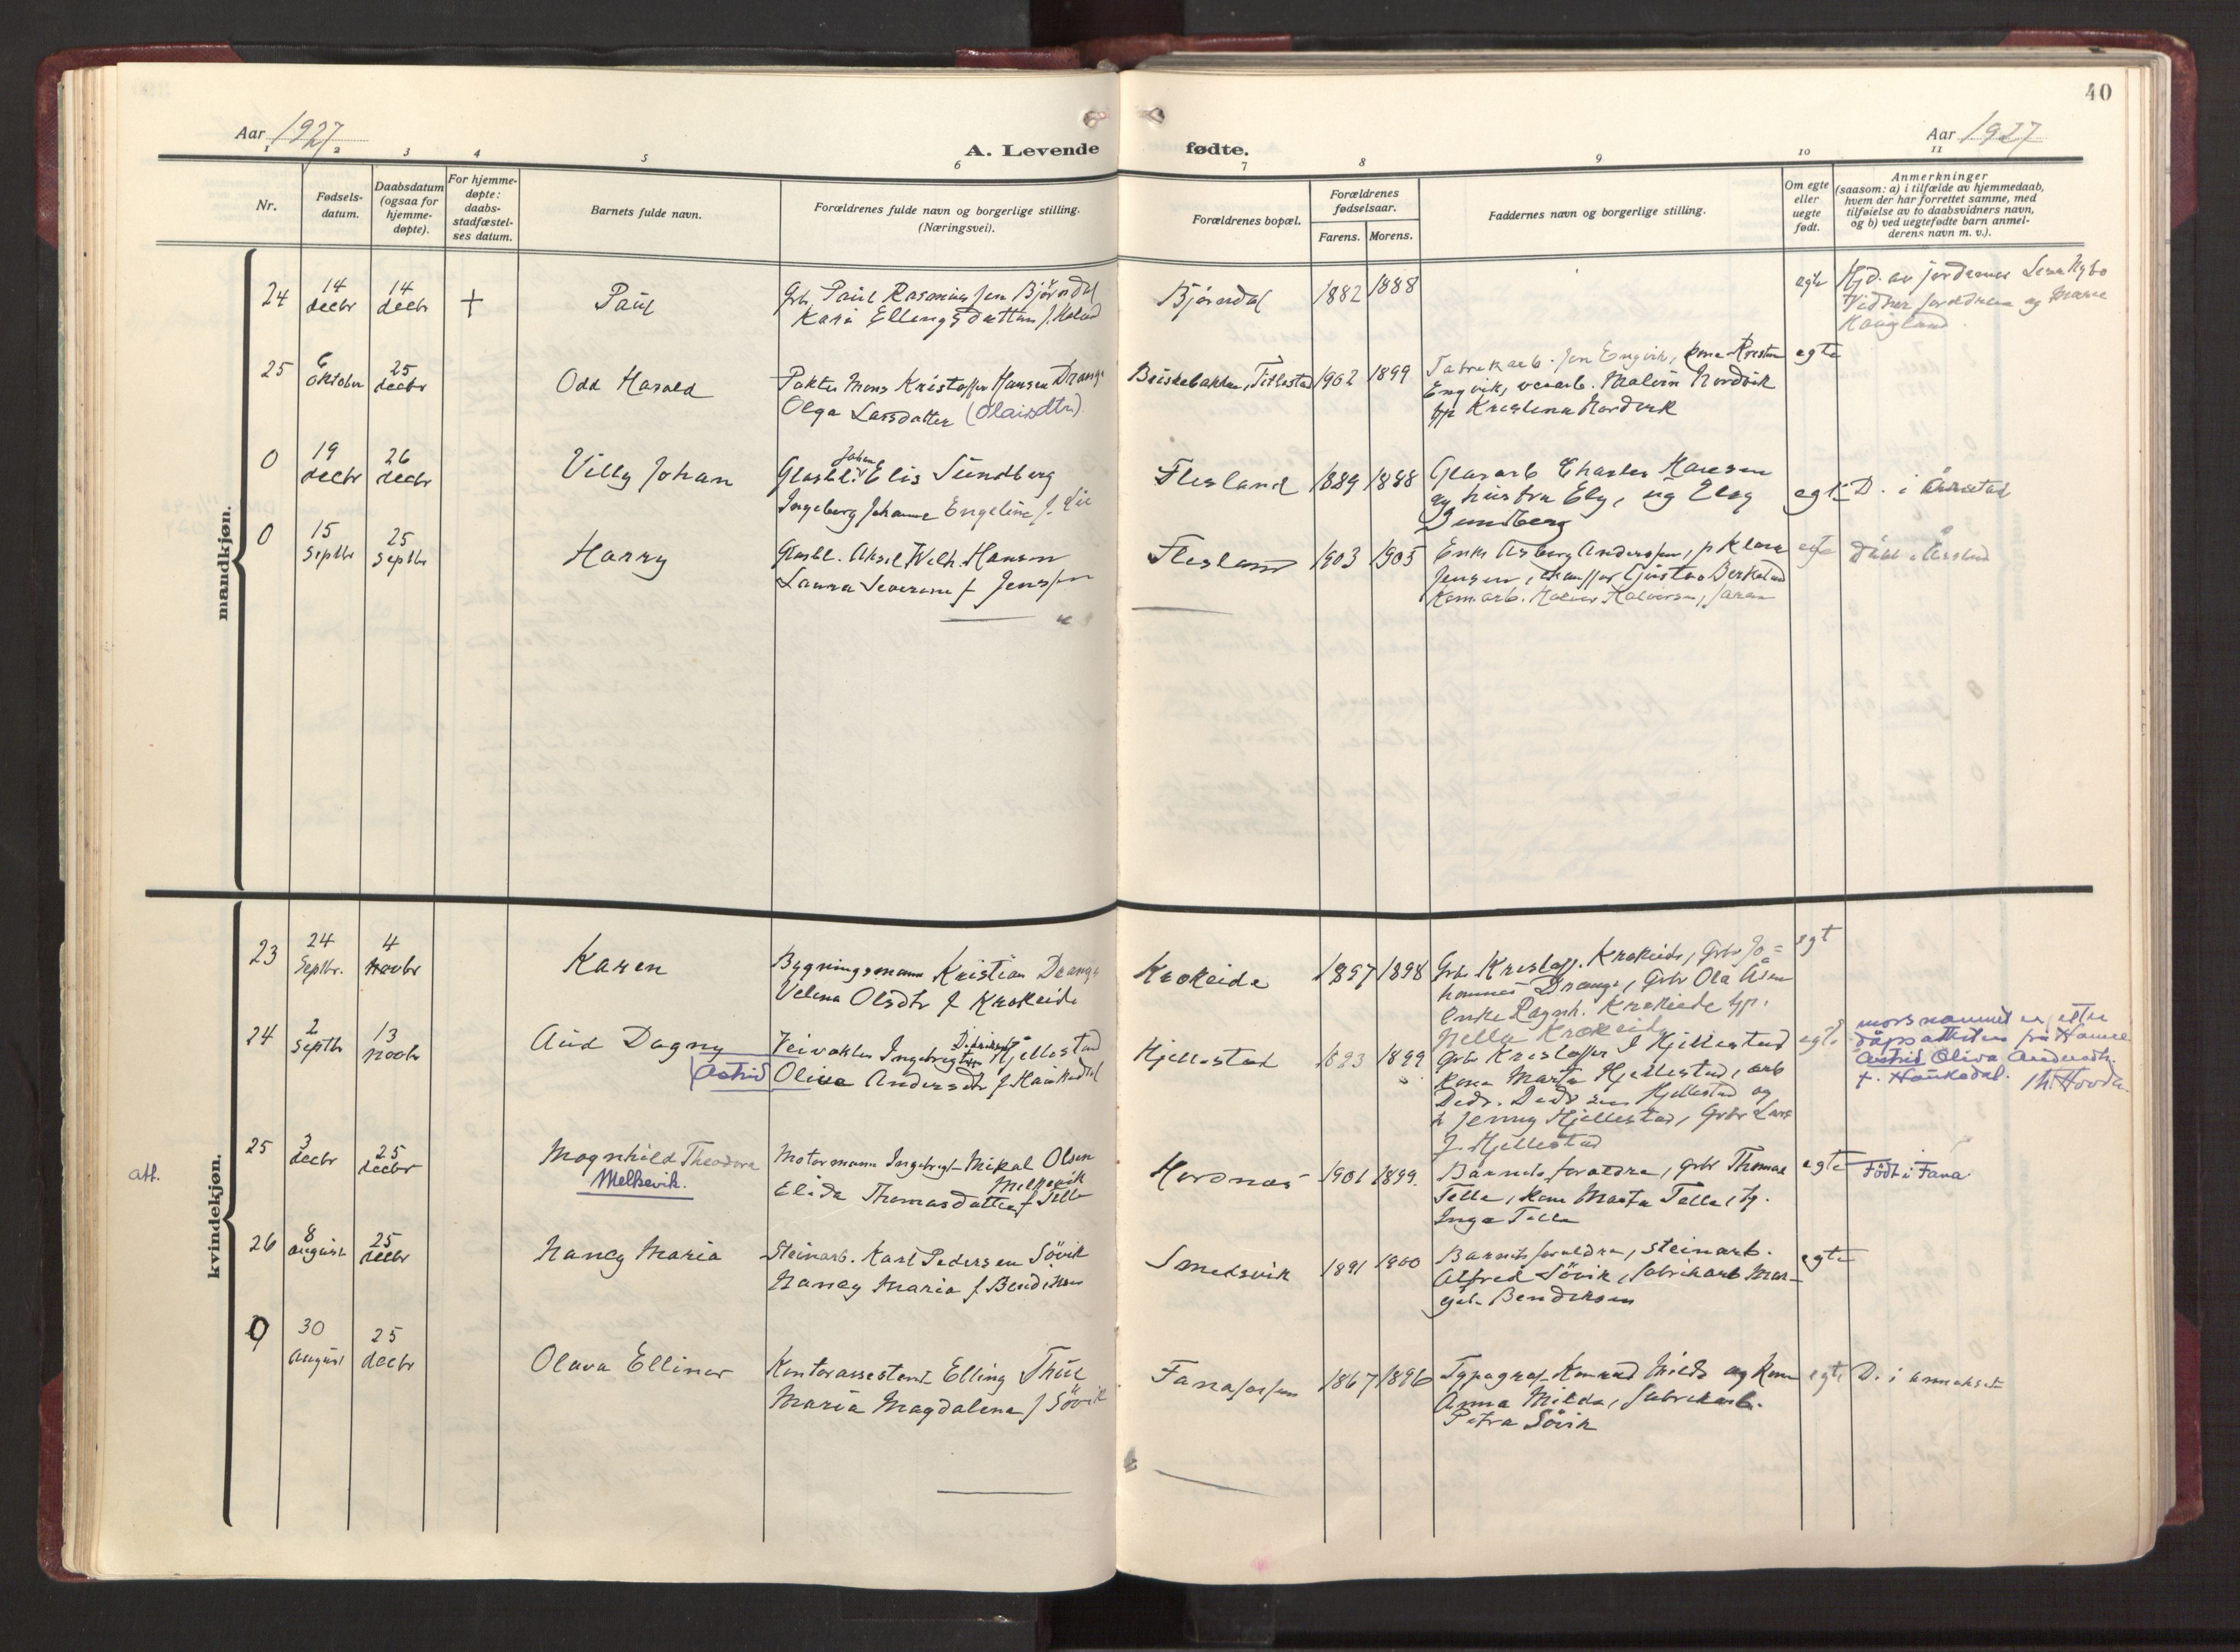 40
Aar 1927
A. Levende fødte.
Aar 1927
1 2 3 4 5 6 7 8 9 10 11
Nr.
Fødsels-
datum.
Daabsdatum
(ogsaa for
hjemme-
døpte).
For hjemme-
døpte:
daabs-
stadfæstel-
ses datum.
Barnets fulde navn.
Forældrenes fulde navn og borgerlige stilling.
(Næringsvei).
Forældrenes bopæl.
Forældrenes
fødselsaar.
Farens. Morens.
Faddernes navn og borgerlige stilling.
Om egte
eller
uegte
født.
Anmerkninger
(saasom: a) i tilfælde av hjemmedaab,
hvem der har forrettet samme, med
tilføielse av to daabsvidners navn,
og b) ved uegtefødte barn anmel-
derens navn m. v.).
mandkjøn.
24
14
decbr
14
decbr
+
Paul
Grbr. Paul Rasmussen Bjørndal
Kari Ellingsdatter f.
Bjørndal
1882 1888
egte
Hjd. av jordemor
Vidner foreldrene og Marie
Haugland
25
6
oktober
25
decbr
Odd Harald
Mons Kristoffer Hansen Drange
Olga Larsdatter (Olaisdtr)
1902 1899
Fabrikarb. Jon Engvik, kona Kristine
Engvik, Malvin Nordvik
pp Kristina Nordvik
egte
0
19
decbr
26
decbr
Villy Johan
Johan
Glasbl. Elis Sundberg
Ingeborg Johanne Engeline f. Lie
Flesland
1889 1888
Glasarb Charles Hansen
og hustru Ely, og Elsy
Sundberg
egte
D. i Årstad
0
15
Septbr
25
Septbr
Harry
Glasbl. Aksel Wilh. Hansen
Laura Severine f Jenssen
Flesland
1903 1905
Enke Asberg Anderssen, p Klara
Jensen, chauffør Gustav Berkeland
Kom.arb.
egte
Døbt i Årstad
kvindekjøn.
23
24
Septbr.
4
Novbr
Karen
Bygningsmann Kristian Drange
Velina Olsdtr f Krokeide
Krokeide
1897 1898
Grbr Kristoff. Krokeide, Grbr Jo=
hannes Drange, Grbr Ola Åsen
Enke Ragnh. Krokeide pp.
Nella Krokeide
egt
24
2
Septbr
13
Novbr
Aud Dagny
Veivokter Ingebrigt Hjellestad
(Astrid) Oliva Andersdtr f Haukedal
Hjellestad
1893 1899
Grbr Kristoffer J Hjellestad
Kona Marta Hjellestad, arb
Hjellestad og
p Jenny Hjellestad, Grbr Lars
J. Hjellestad
egte
morsnavnet er etter
dåpsattesten frå Hamre
Astrid Oliva Andersdtr.
f. Haukedal. Th. Hovda.
att.
25
3
decbr
25
decbr
Magnhild Theodora
Melkevik.
Motormann Ingebrigt Mikal Olsen
Melkevik
Elida Thomasdatter f Telle
Hordnas
1901 1899.
Barnets foreldre, Grbr Thomas
Telle, Kona Marta Telle,
Inga Telle
egte
Født i Fana
26
8
august
25
decbr
Nancy Maria
Steinarb. Karl Pedersen Søvik
Nancy Maria f Bendiksen
Smedsvik
1891 1900
Barnets foreldre, Steinarb.
Alfred Søvik, fabrikarb Mar-
git Bendiksen
egte
0
30
August
25
decbr
Olava Ellinor
Kontorassistent Elling Thue
Maria Magdalena f Søvik
Fanaforsen
1867 1896
Typograf Konrad Milde og kona
Anna Milde, fabrikarb.
Petra Søvik
egte
D. i annekset